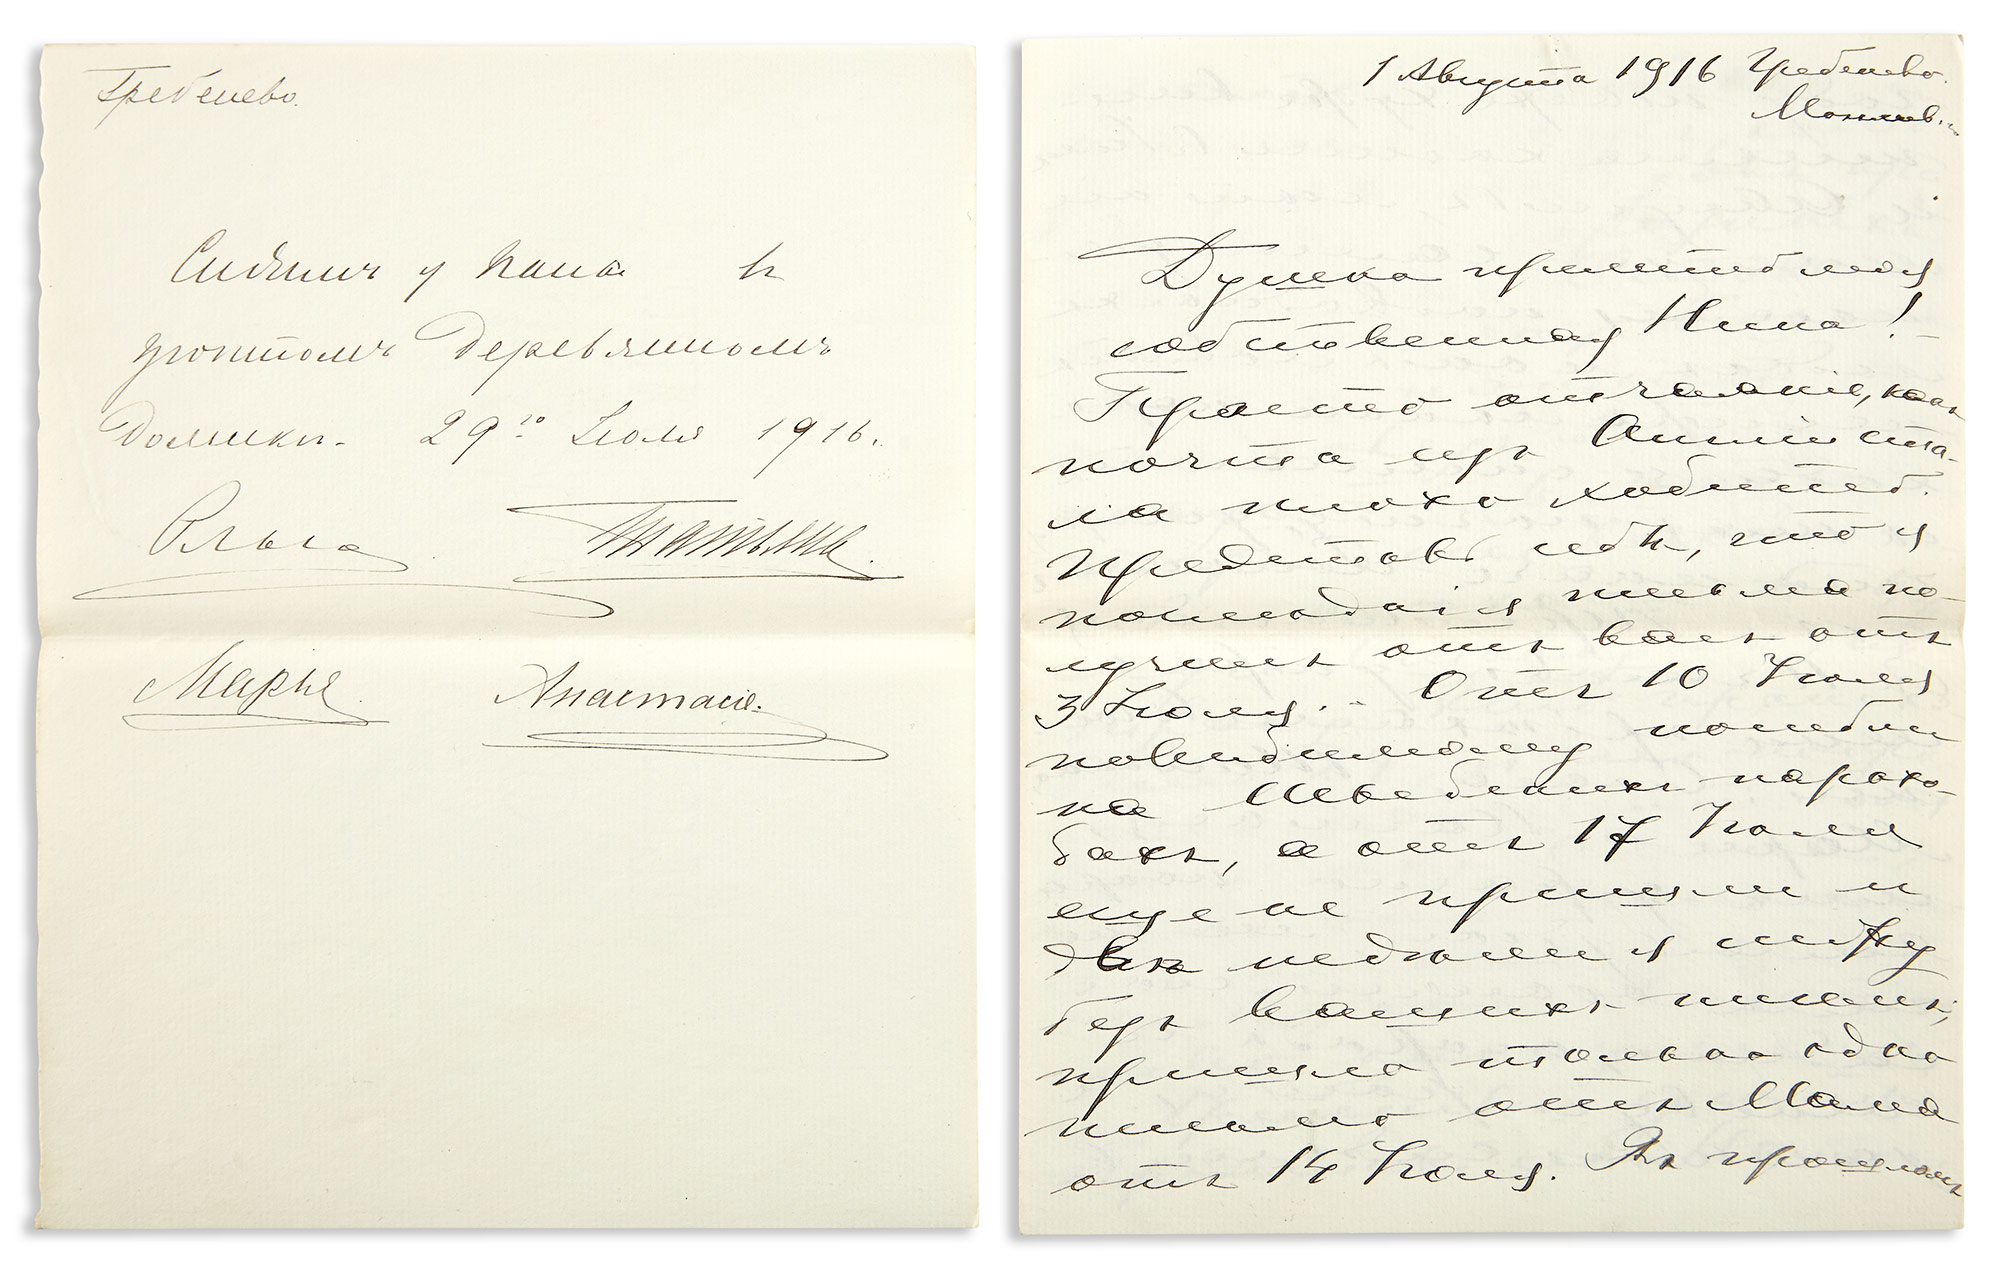 Гребенево.
Сидимъ у папа въ
уютномъ деревянномъ
домикѣ. 29го Іюля 1916.
Ольга Татьяна.
Марія. Анастасія.
1 Августа 1916 Гребенево.
Душка прелюбимая
собственная Нина!
Просто отчаяніе, какъ
почта изъ Англіи ста-
ла плохо ходить.
Представь себѣ, что я
последнія письма по-
лучилъ отъ васъ отъ
3 Іюля. Отъ 10 Іюля
повидимому погибли
на Шведскихъ парохо-
дахъ, а отъ 17 Іюля
еще не пришли и
двѣ недѣли я сижу
безъ вашихъ писемъ,
пришло только одно
письмо отъ Мама
отъ 14 Іюля. Въ прошломъ